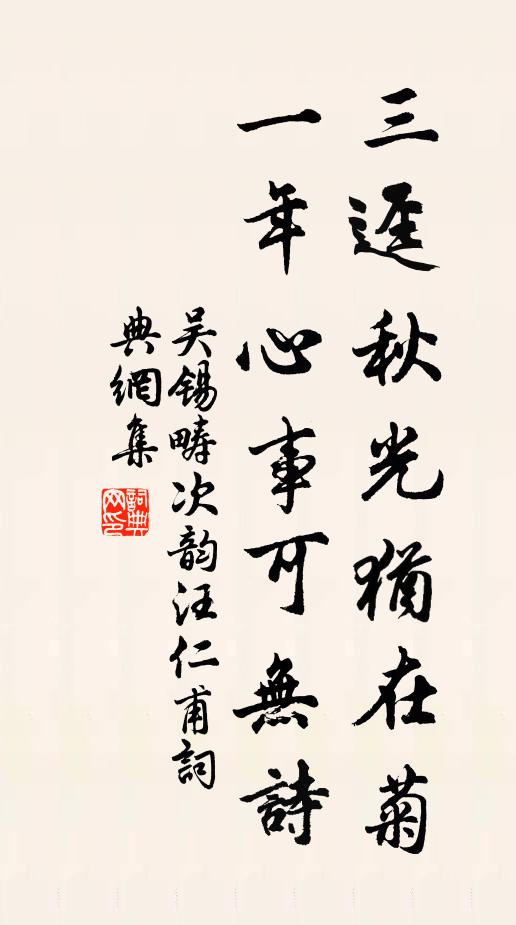 三逕秋光猶在菊
一年心事可無詩
吴錫畴次韵汪仁甫詞
典網集
詞典
网印